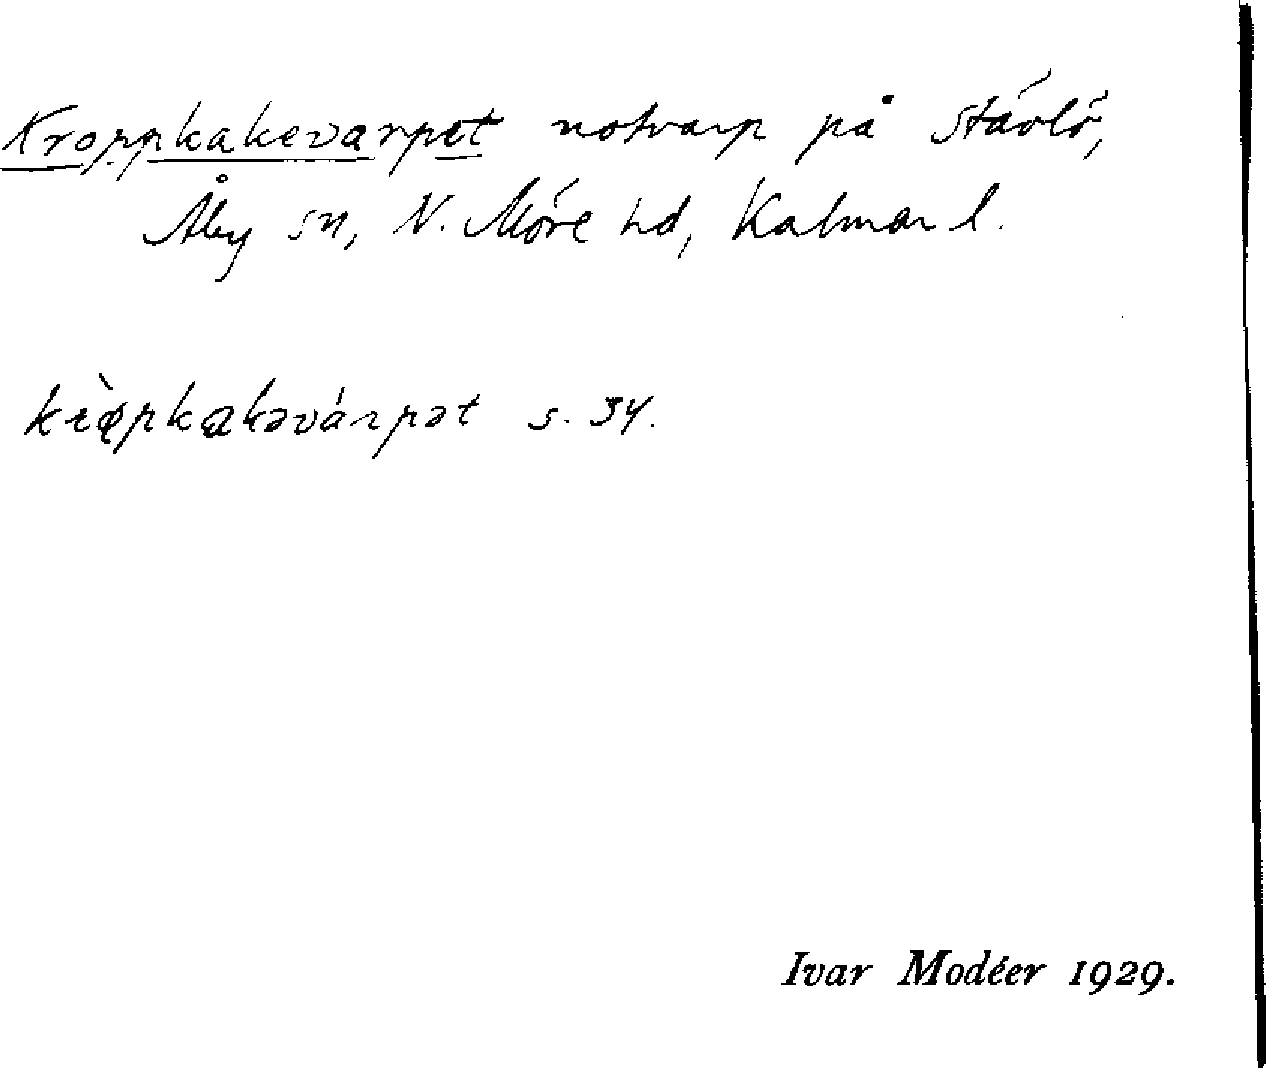 Kroppkakevarpet notvarp på Stävlö,
Åby sn, N. Möre hd, Kalmar l.
krø̀pkakəvárpət s. 34.
Ivar Modéer 1929.